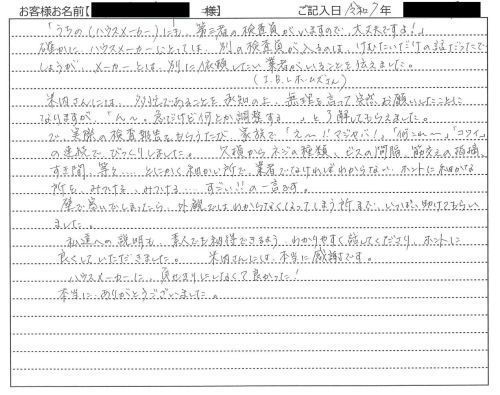 お客様お名前【 様】 ご記入日 令和7年
「うちの(ハウスメーカー)にも、第三者の検査員がいますので、大丈夫ですよ!」
確かに、ハウスメーカーにとっては、別の検査員が入るのは、けむたいだけの話だったで
しょうが、メーカーとは、別に依頼したい業者がいることを伝えました。
(J.B.Lホームズさん)
米内さんには、多忙であることを承知の上、無理を言って突然お願いしたことに
なりますが、「ん〜。急だけど何とか調整する。」と了解してもらえました。
で、実際の検査報告をもらうたび、家族で「え〜!!マジヤバ!」「何これ〜」「コワイ」
の連発で、びっくりしました。 欠損からネジの種類、ビスの間隔、筋交えの指摘、
すき間、等々… とにかく細かい所で、業者でなければわからない、ホントに細かな
所を、みつける、みつける… すごい!!の一言です。
壁で塞いでしまったら、外観ではわからなくなってしまう所まで、いっぱい助けてもらい
ました。
私達への説明も、素人でも納得できるよう、わかりやすく話してくださり、ホントに
良くしていただきました。 米内さんには、本当に感謝です。
ハウスメーカーに、負かせっきりにしなくて良かった!
本当に、ありがとうございました。